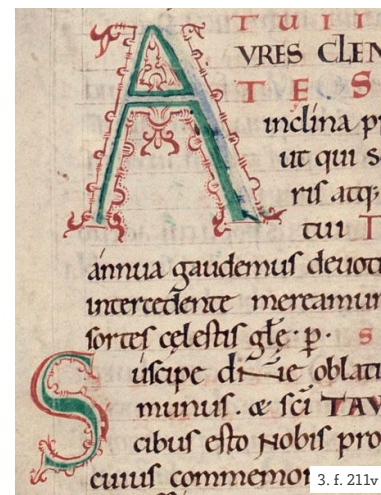 TUII
VRES CLEN
TES
A inclina p
ut qui s
ris atq;
tui T
annua gaudemus deuoti
intercedente mereamur
sortes cęlestis glę. p. S
Suscipe dne oblati
munus. & sci TAV
cibus esto Nobis pro
cuius commemor
3. f. 211v